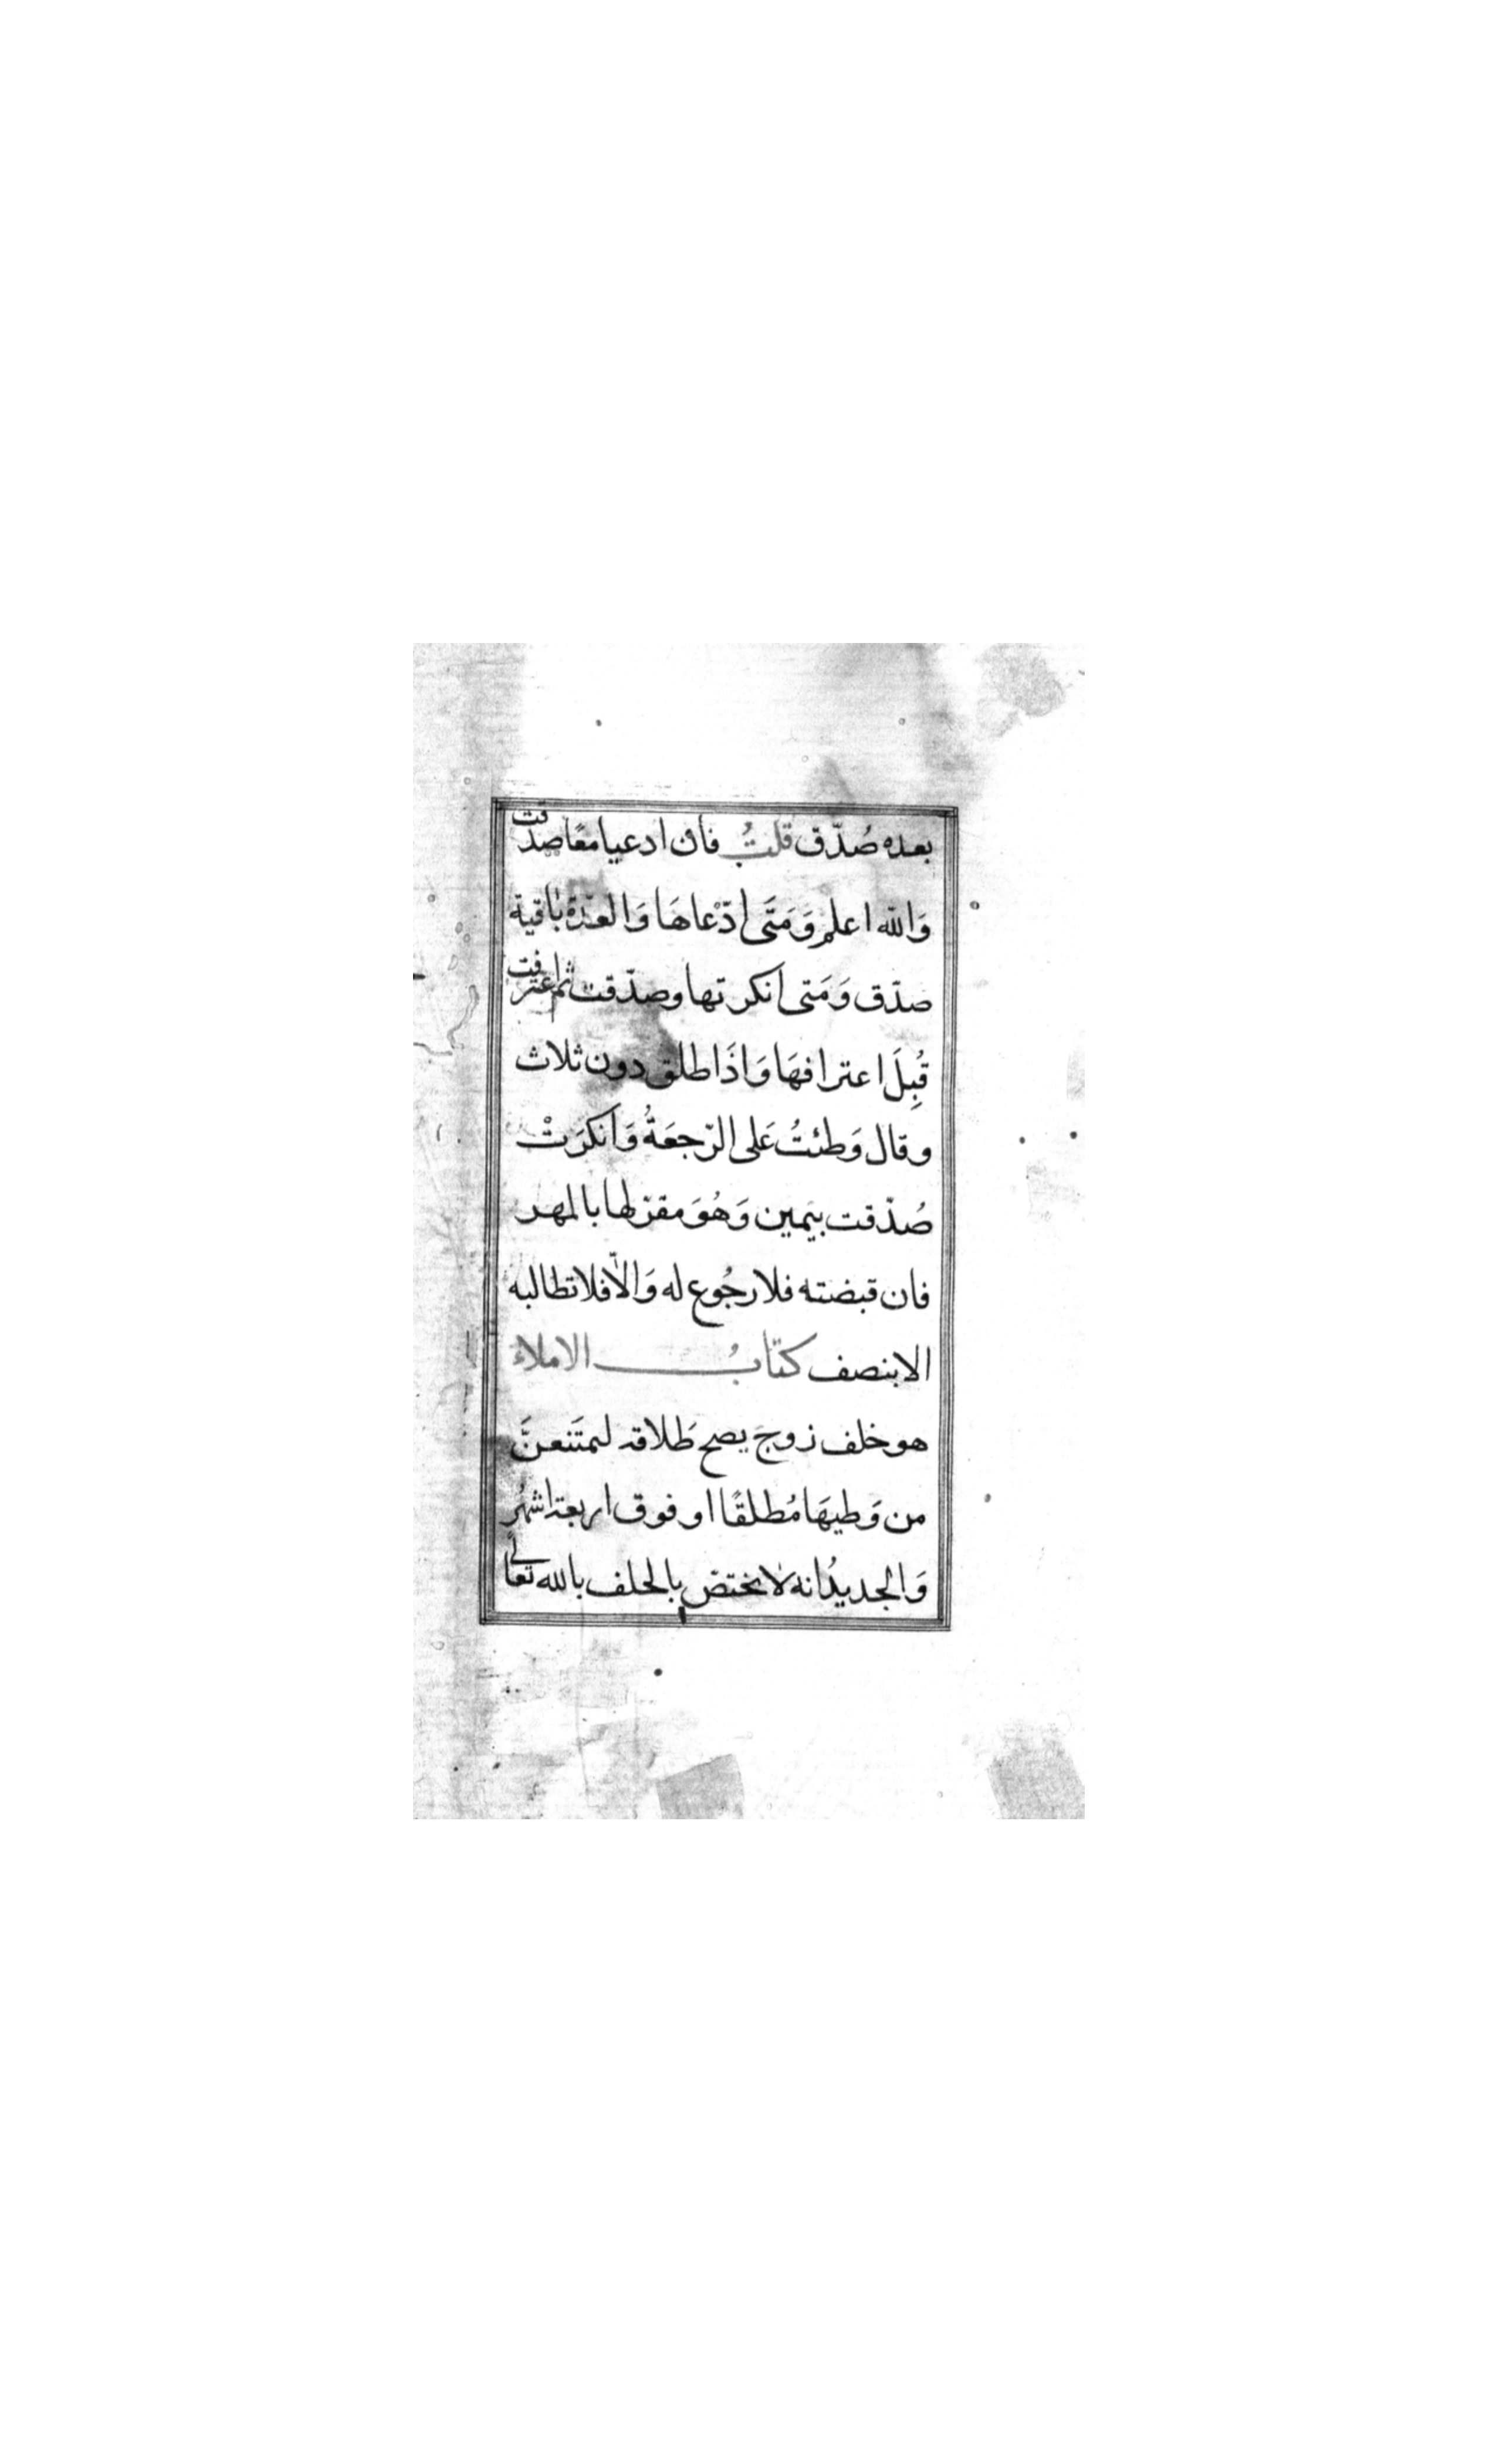 بعده صُدّق قلتُ فان ادعيا معًا صدقت
وَالله اعلم وَمَتَى ادّعاهَا وَالعدّة باقية
صدّق وَمَتى انكرتها وصدّقت ثم اعترفت
قُبِلَ اعترافهَا وَاذَا طلق دون ثلاث
وقال وَطئتُ عَلى الرّجعَةُ وَانكرَتْ
صُدّقت بيَمين وَهُوَ مقرّ لها بالمهر
فان قبضته فلا رجُوع له وَالاّ فلا تطالبه
الا بنصف كتابُ الاملاء
هو خلف زوجَ يصح طَلاقه ليمتَنعنَّ
من وَطيهَا مُطلقًا او فوق اربعة اشهُر
وَالجديدُ انه لا يختصّ بالحلف بالله تعالى